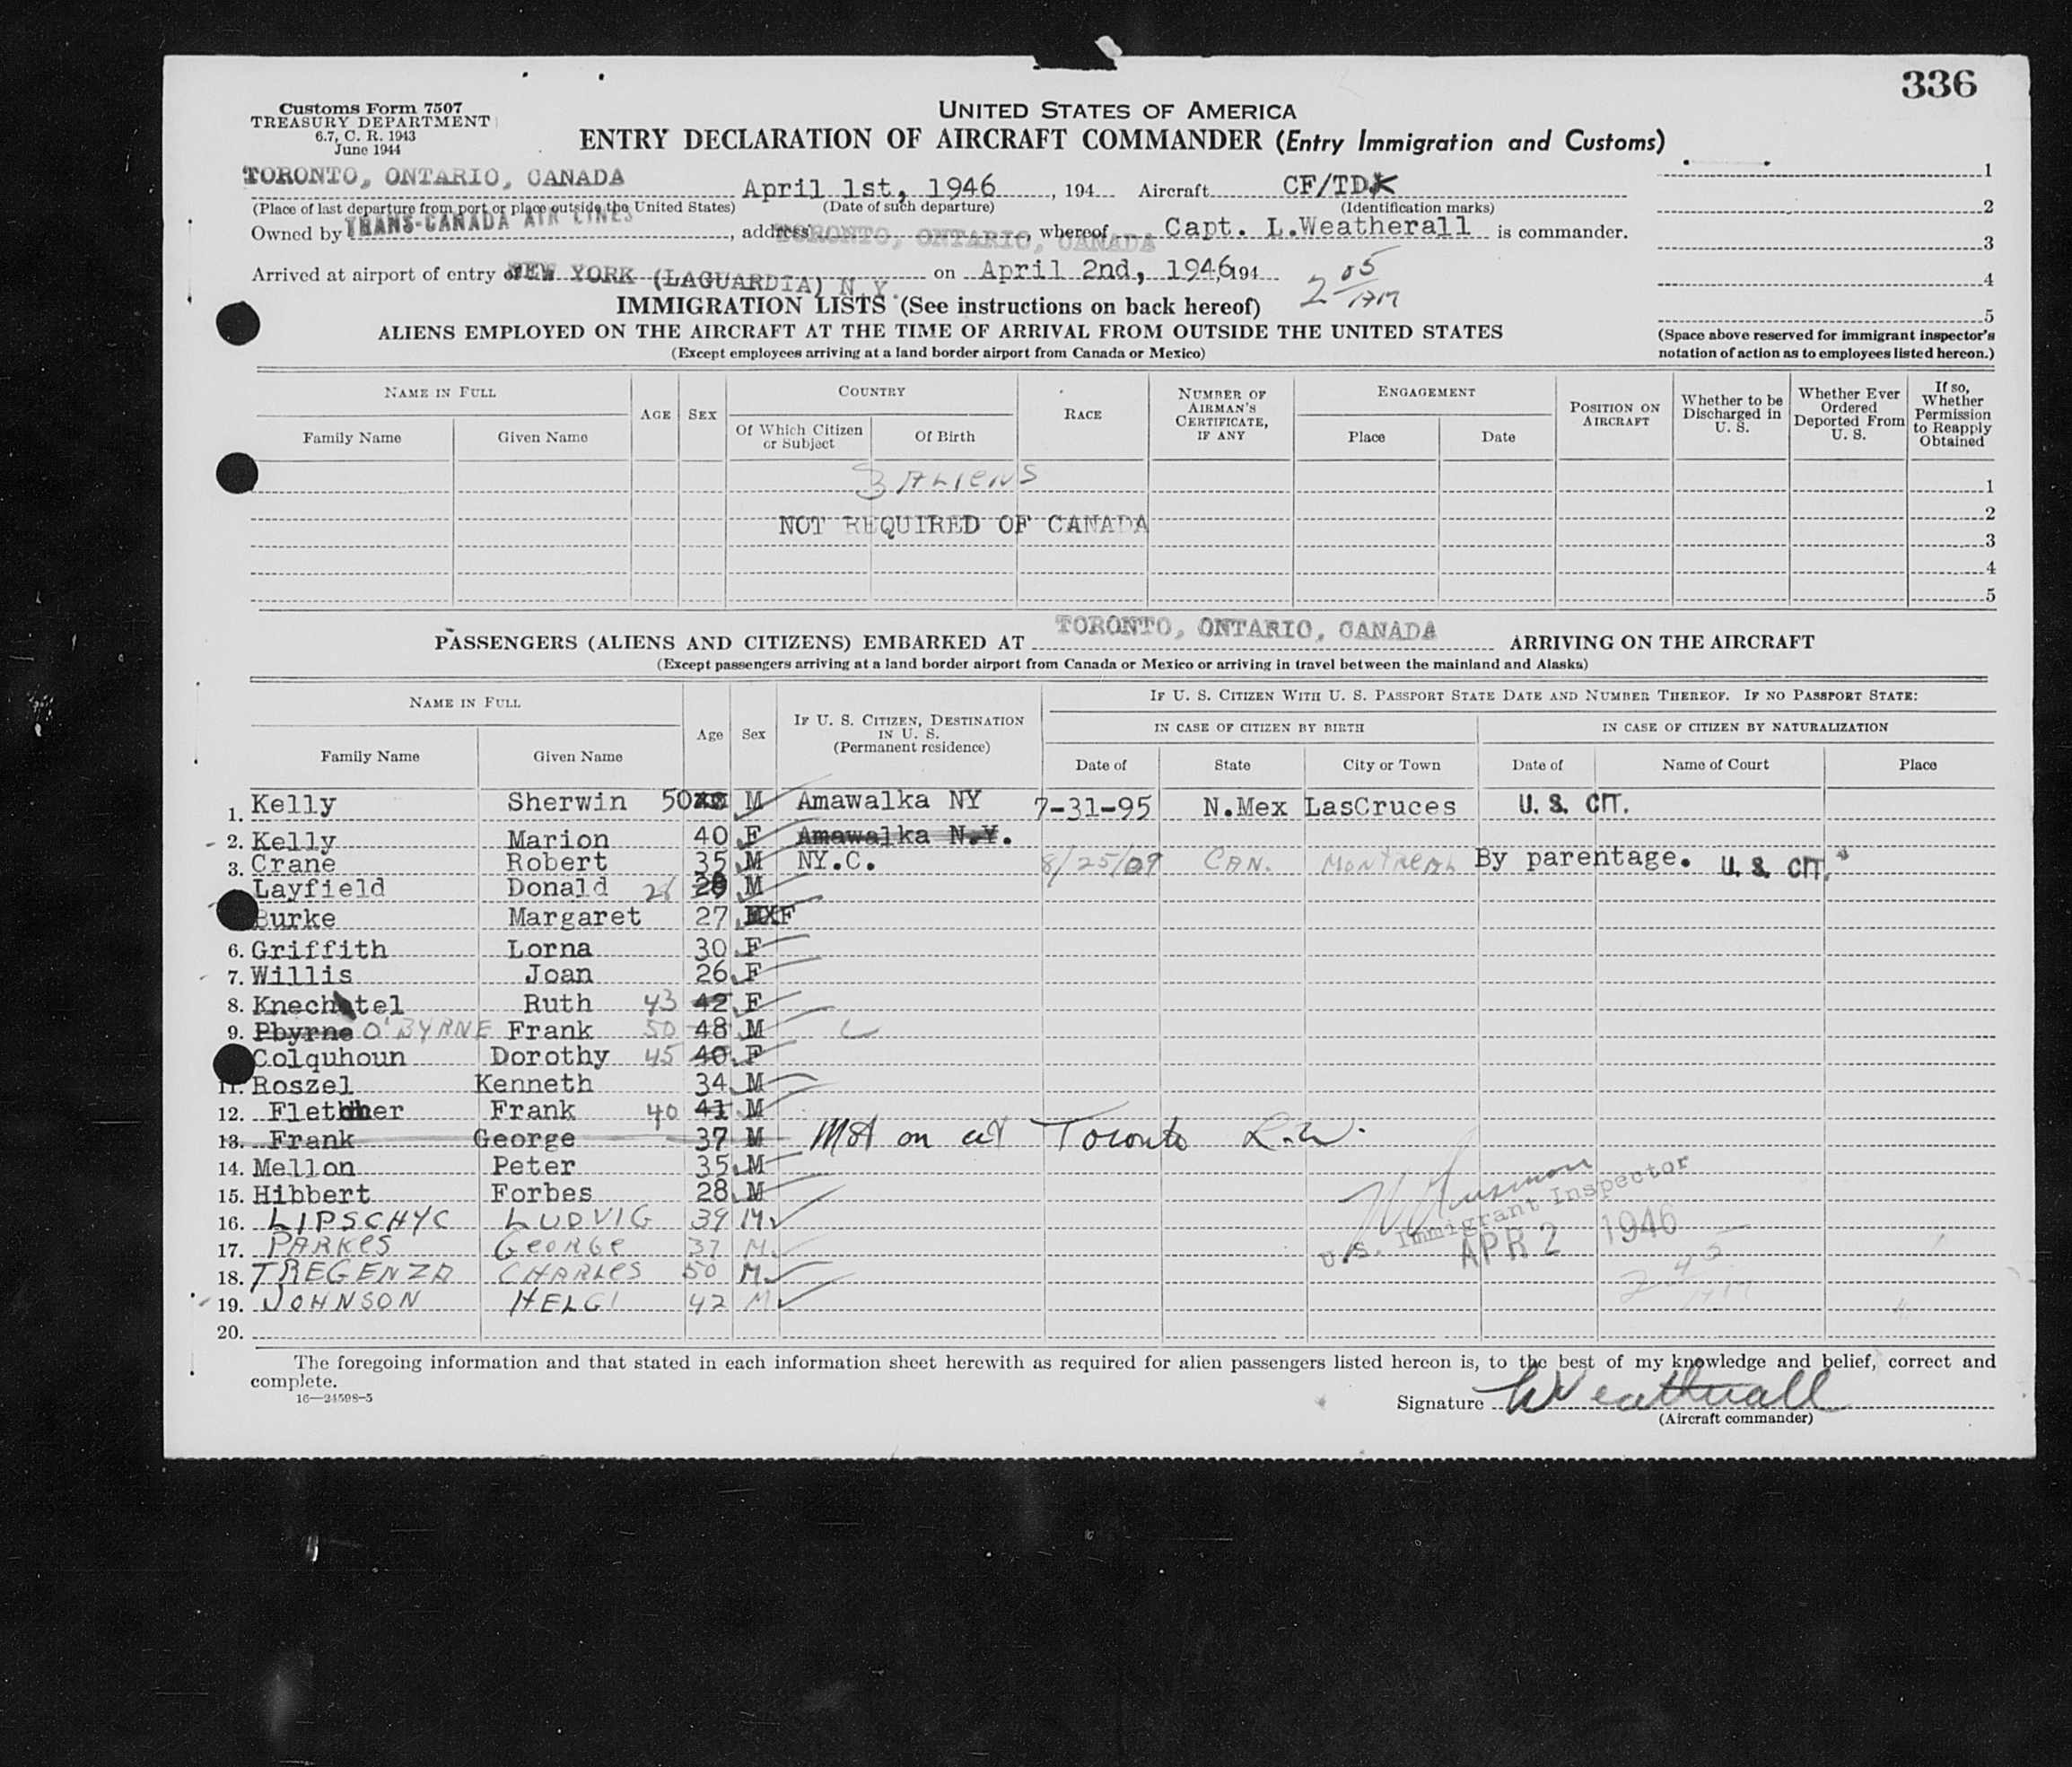 336
Customs Form 7507
TREASURY DEPARTMENT
6.7, C. R. 1943
June 1944
UNITED STATES OF AMERICA
ENTRY DECLARATION OF AIRCRAFT COMMANDER (Entry Immigration and Customs)
TORONTO, ONTARIO, CANADA April 1st, 1946, 194 Aircraft CF/TDK
(Place of last departure from port or place outside the United States) (Date of such departure) (Identification marks)
Owned by TRANS-CANADA AIR LINES, address TORONTO, ONTARIO, CANADA, whereof Capt. L.Weatherall is commander.
Arrived at airport of entry of NEW YORK (LAGUARDIA) N.Y. on April 2nd, 1946, 194
2 05
1
2
3
4
5
IMMIGRATION LISTS (See instructions on back hereof)
ALIENS EMPLOYED ON THE AIRCRAFT AT THE TIME OF ARRIVAL FROM OUTSIDE THE UNITED STATES
(Except employees arriving at a land border airport from Canada or Mexico)
(Space above reserved for immigrant inspector's
notation of action as to employees listed hereon.)
NAME IN FULL
Family Name Given Name
AGE SEX
COUNTRY
Of Which Citizen or Subject Of Birth
RACE
NUMBER OF AIRMAN'S CERTIFICATE, IF ANY
ENGAGEMENT
Place Date
POSITION ON AIRCRAFT
Whether to be Discharged in U. S.
Whether Ever Ordered Deported From U. S.
If so, Whether Permission to Reapply Obtained
3 ALIENS 1
NOT REQUIRED OF CANADA 2
3
4
5
PASSENGERS (ALIENS AND CITIZENS) EMBARKED AT TORONTO, ONTARIO, CANADA ARRIVING ON THE AIRCRAFT
(Except passengers arriving at a land border airport from Canada or Mexico or arriving in travel between the mainland and Alaska)
NAME IN FULL
Family Name Given Name
Age Sex
IF U. S. CITIZEN, DESTINATION IN U. S. (Permanent residence)
IF U. S. CITIZEN WITH U. S. PASSPORT STATE DATE AND NUMBER THEREOF. IF NO PASSPORT STATE:
IN CASE OF CITIZEN BY BIRTH IN CASE OF CITIZEN BY NATURALIZATION
Date of State City or Town Date of Name of Court Place
1. Kelly Sherwin 50 M Amawalka NY 7-31-95 N.Mex LasCruces U. S. CIT.
2. Kelly Marion 40 F Amawalka N.Y.
3. Crane Robert 35 M NY.C. 8/25/09 CAN. MONTREAL By parentage. U. S. CIT.
Layfield Donald 26 28 M
Burke Margaret 27 F
6. Griffith Lorna 30 F
7. Willis Joan 26 F
8. Knechtel Ruth 43 42 F
9. Pbyrne O'BYRNE Frank 50 48 M
Colquhoun Dorothy 45 40 F
11. Roszel Kenneth 34 M
12. Fletcher Frank 40 41 M
13. Frank George 37 M Not on at Toronto L.W.
14. Mellon Peter 35 M
15. Hibbert Forbes 28 M
16. LIPSCHYC LUDVIG 39 M
17. PARKES GEORGE 37 M
18. TREGENZA CHARLES 50 M
19. JOHNSON HELGI 42 M
20.
U.S. Immigrant Inspector
APR 2 1946
2 45
The foregoing information and that stated in each information sheet herewith as required for alien passengers listed hereon is, to the best of my knowledge and belief, correct and
complete.
16—24598-5
Signature Weatherall
(Aircraft commander)